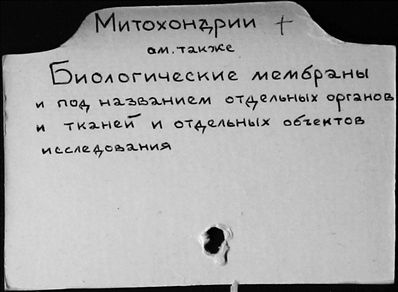 Митохондрии +
см. также
Биологические мембраны
и под названием отдельных органов
и тканей и отдельных объектов
исследования